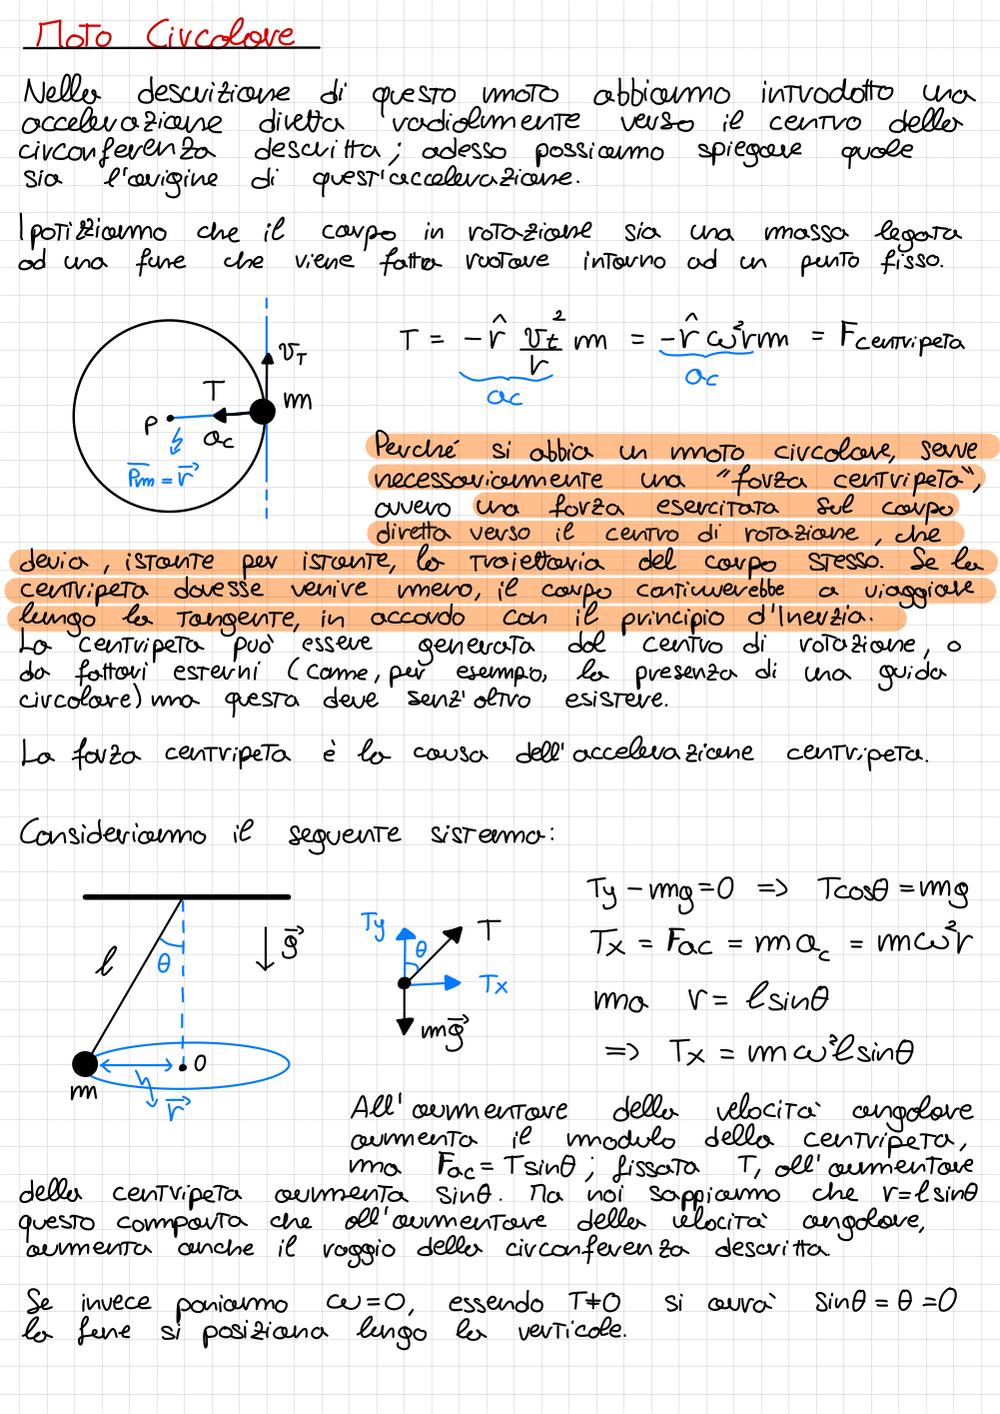 Moto Circolare
Nella descrizione di questo moto abbiamo introdotto una
accelerazione diretta radialmente verso il centro della
circonferenza descritta; adesso possiamo spiegare quale
sia l'origine di quest'accelerazione.
Ipotizziamo che il corpo in rotazione sia una massa legata
ad una fune che viene fatta ruotare intorno ad un punto fisso.
v_T
T
m
P
a_c
Pm = r⃗
T = -r̂ v_t²/r m = -r̂ ω²r m = F centripeta
a_c
a_c
Perché si abbia un moto circolare, serve
necessariamente una "forza centripeta",
ovvero una forza esercitata sul corpo
diretta verso il centro di rotazione, che
devia, istante per istante, la traiettoria del corpo stesso. Se la
centripeta dovesse venire meno, il corpo continuerebbe a viaggiare
lungo la tangente, in accordo con il principio d'Inerzia.
La centripeta può essere generata dal centro di rotazione, o
da fattori esterni (come, per esempio, la presenza di una guida
circolare) ma questa deve senz'altro esistere.
La forza centripeta è la causa dell'accelerazione centripeta.
Consideriamo il seguente sistema:
l
θ
g⃗
m
O
r⃗
Ty
θ
T
Tx
mg⃗
Ty - mg = 0 => Tcosθ = mg
Tx = Fac = m a_c = mω²r
ma r = l sinθ
=> Tx = mω²l sinθ
All'aumentare della velocità angolare
aumenta il modulo della centripeta,
ma Fac = T sinθ; fissata T, all'aumentare
della centripeta aumenta sinθ. Ma noi sappiamo che r = l sinθ
questo comporta che all'aumentare della velocità angolare,
aumenta anche il raggio della circonferenza descritta.
Se invece poniamo ω=0, essendo T≠0 si avrà sinθ = θ = 0
la fune si posiziona lungo la verticale.